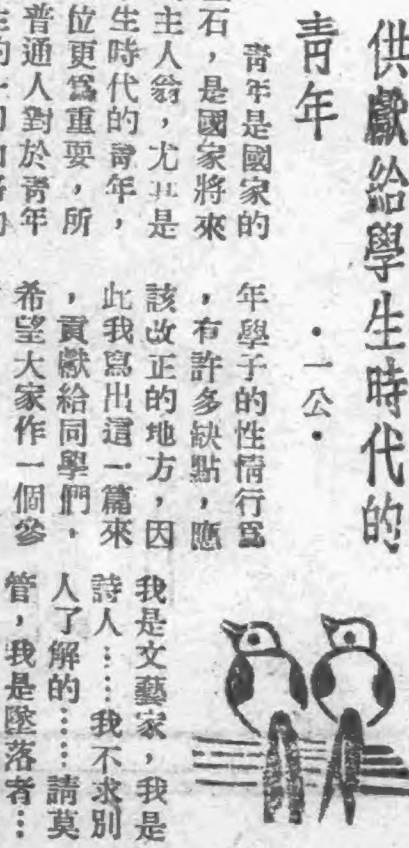 供獻給學生時代的
青年
・一公・
青年是國家的
石，是國家將來
主人翁，尤其是
生時代的青年，
位更爲重要，所
普通人對於青年
年學子的性情行爲
，有許多缺點，應
該改正的地方，因
此我寫出這一篇來
，貢獻給同學們，
希望大家作一個參
我是文藝家，我是
詩人……我不求別
人了解的……請莫
管，我是墜落者…